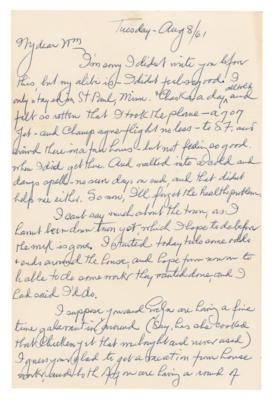 Tuesday - Aug 8/61
My dear Wm
I'm sorry I didn't write you before
this, but my alibi is - I didn't feel so good. I
only stayed in St Paul, Minn. a day, all told
felt so rotten that I took the plane - a 707
Jet - and Champ agne - flight no less - to S.F. and
arrived there in a few hours - but not feeling so good,
when I did get here. And walked into a cold and
damp spell - no sun days on end, and that didn't
help me either. So now, I'll forget the health problem.
I can't say much about the town, as I
haven't been down town yet, which I hope to do before
the week is gone. I started today to take some odds
+ ends around the house, and hope from now on to
be able to do some work they wanted done, and I
had said I'd do.
I suppose you and are having a fine
time in general (Say, has she cooked
that chicken yet that we bought and never used)
I guess your glad to get a vacation from house
work, and both of you are having a round of